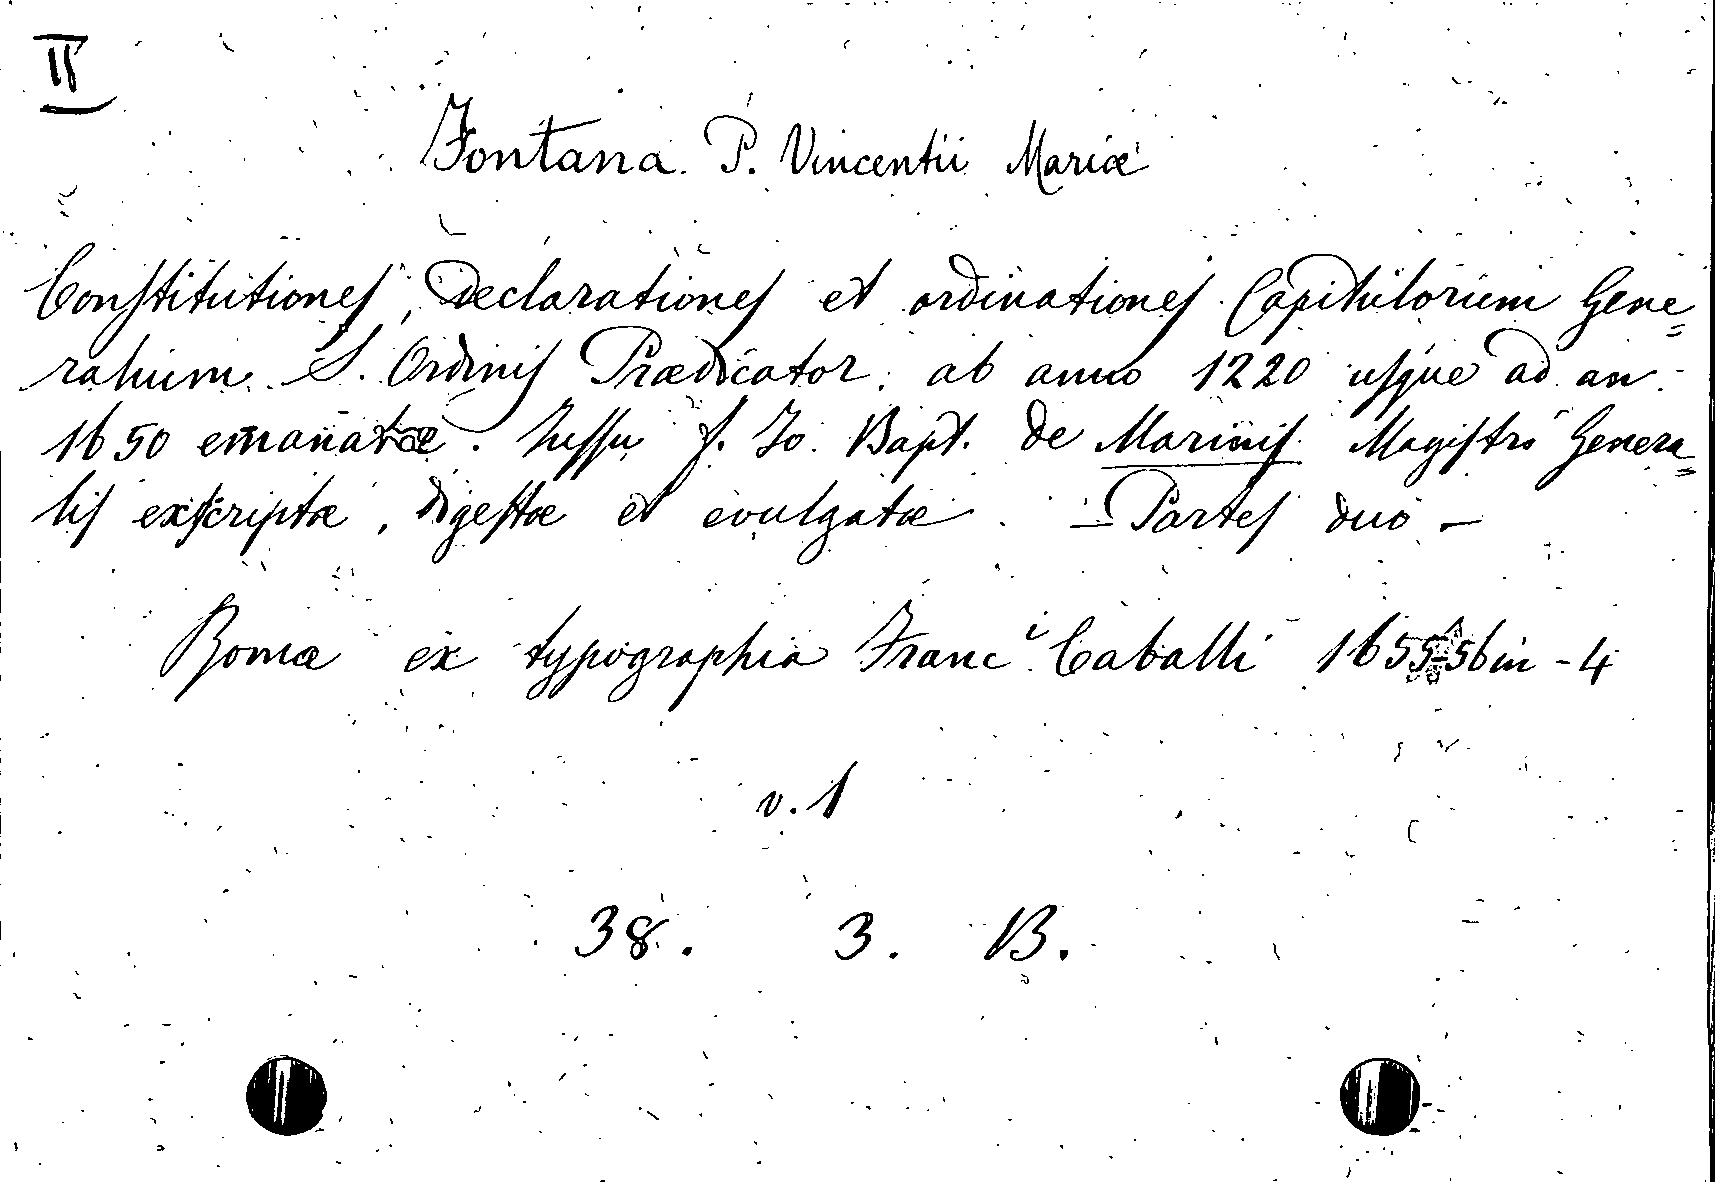 II
Fontana P. Vincentii Mariæ
Constitutiones, Declarationes et ordinationes Capitulorum Gene=
ralium S. Ordinis Prædicator. ab anno 1220 usque ad an.
1650 emanatæ. Jussu f. Jo. Bapt. de Marinis Magistri Genera=
lis exscriptæ, digestæ et evulgatæ. - Partes duo -
Romæ ex typographia Franc i Caballi 1655-56 in-4
v. 1
38. 3. B.